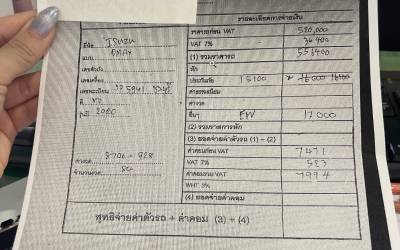 รายละเอียดการจ่ายเงิน
ราคารถก่อน VAT 520,000
ยี่ห้อ ISUZU
VAT 7% 36,400
แบบ DMAX
(1) รวมราคารถ 556,400
เลขตัวถัง
หัก
เลขเครื่อง
ประกันภัย 15100
เลขทะเบียน
ค่าธรรมเนียม
สี
ค่างวด
ปี 2020
อื่นๆ EW 17000
(2) รวมรายการหัก
(3) ยอดจ่ายค่าตัวรถ (1) - (2)
ค่าคอมก่อน VAT 7471
ค่างวด 8701 - 828
VAT 7% 523
จำนวนงวด 84
ค่าคอมรวม VAT 7994
WHT 3%
(4) ยอดจ่ายค่าคอม
สุทธิจ่ายค่าตัวรถ + ค่าคอม (3) + (4)